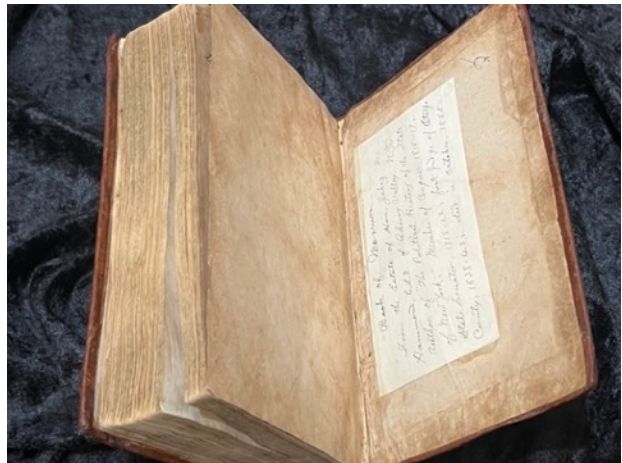 Book of Mormon
From the Estate of Hon. Jabez D.
Hammond L.L.D. of Cherry Valley, N.Y.
Author of "The Political History of the State
of New York. Member of Congress 1815-17.
State Senator 1818-21, first Judge of Otsego
County, 1838-43. died in October, 1855.